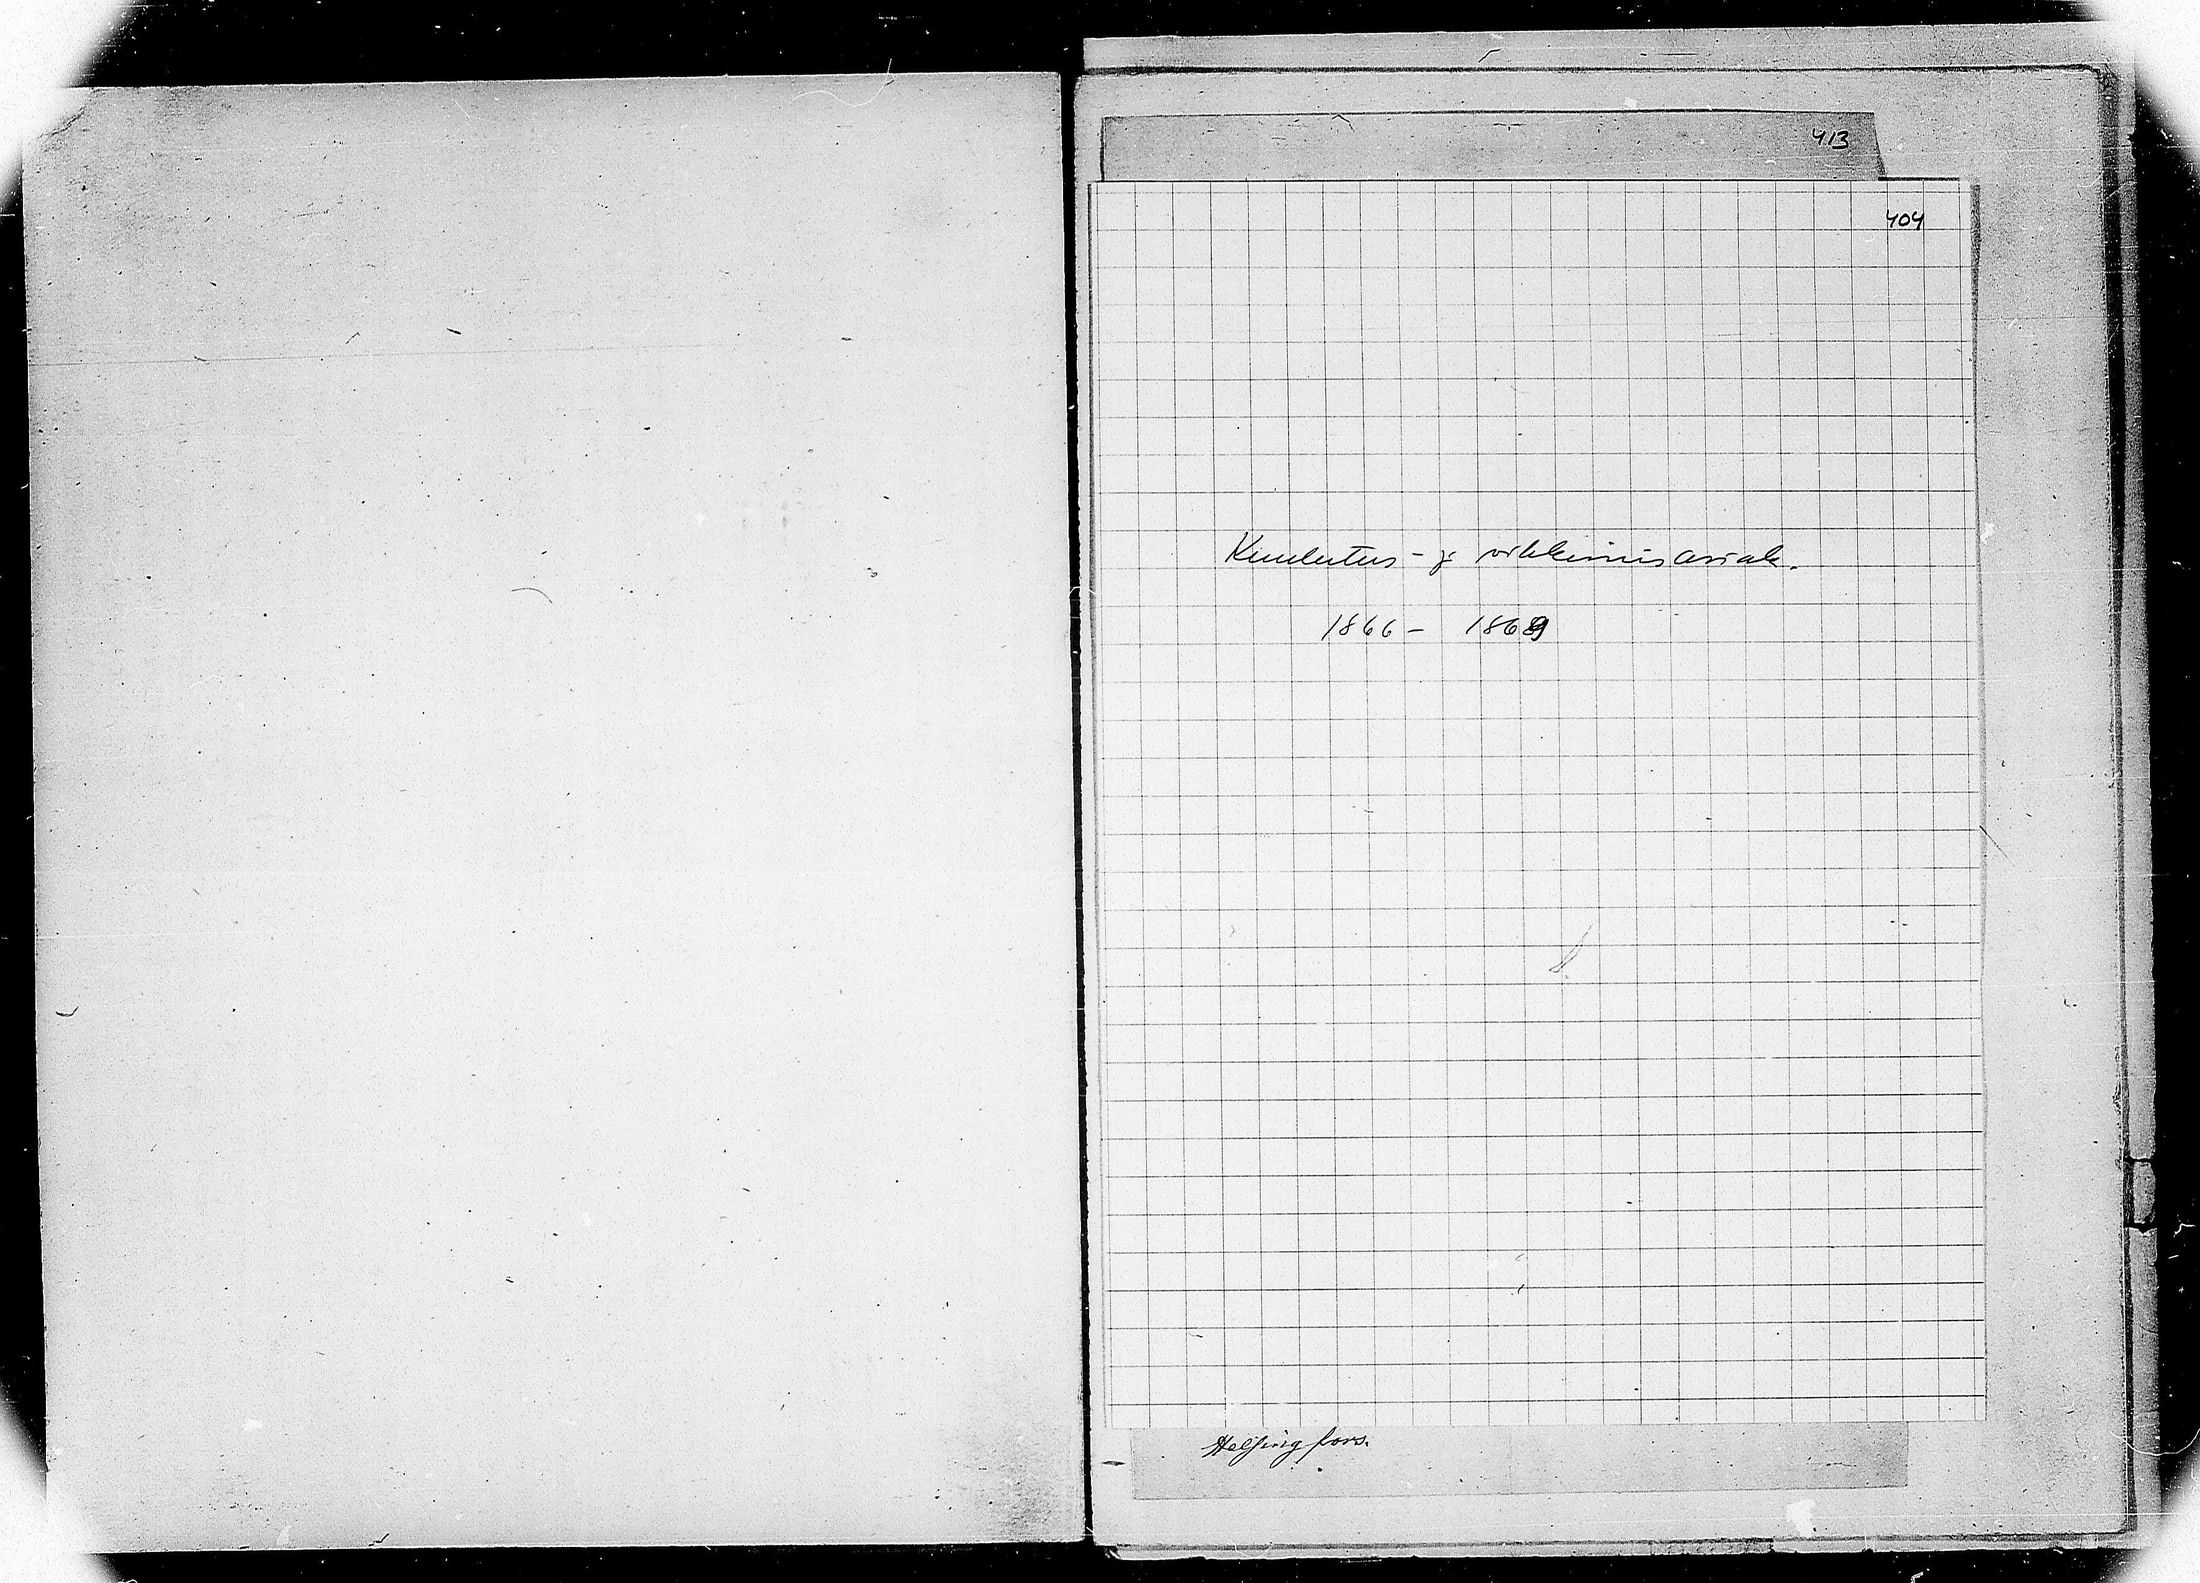 413
404
Kuulutus- ja vihkimisasiak.
1866 - 1869
Helsingfors.